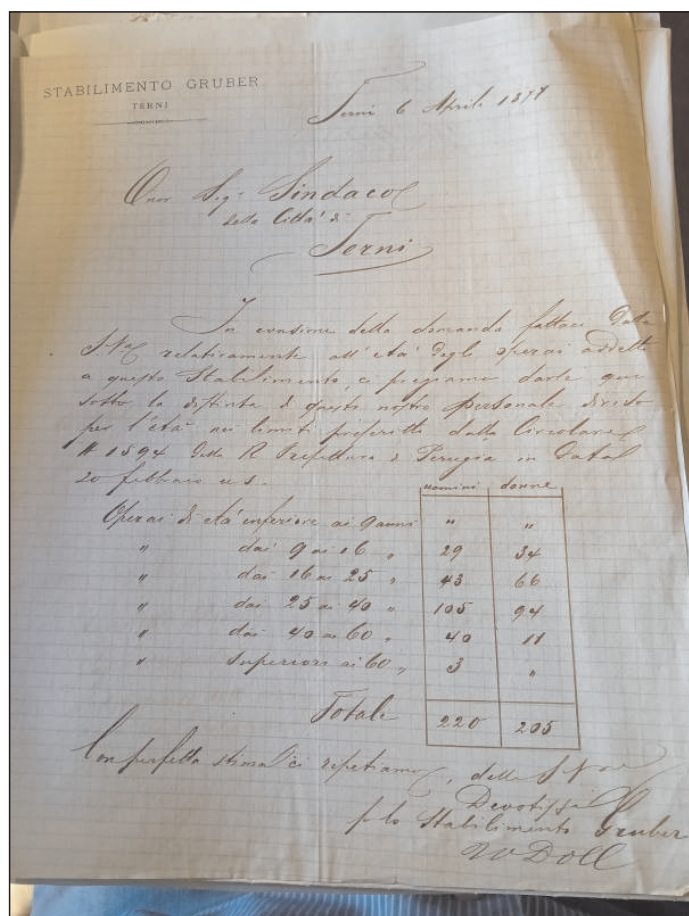 STABILIMENTO GRUBER
TERNI
Terni 6 Aprile 1878
Onor Sig.r Sindaco
della Città di
Terni
In evasione della domanda fattaci dalla
S. V. relativamente all'età degli operai addetti
a questo Stabilimento, ci pregiamo darle qui
sotto la distinta di questo nostro personale diviso
per l'età nei limiti prescritti dalla Circolare
# 1594 della R Prefettura di Perugia in data
20 febbraio u.s.
uomini donne
Operai di età inferiore ai 9 anni " "
" dai 9 ai 16 " 29 34
" dai 16 ai 25 " 43 66
" dai 25 ai 40 " 105 94
" dai 40 ai 60 " 40 11
" superiori ai 60 " 3 "
Totale 220 205
Con perfetta stima ci ripetiamo, della S. V.
Devotissi
p lo Stabilimento Gruber
Doll